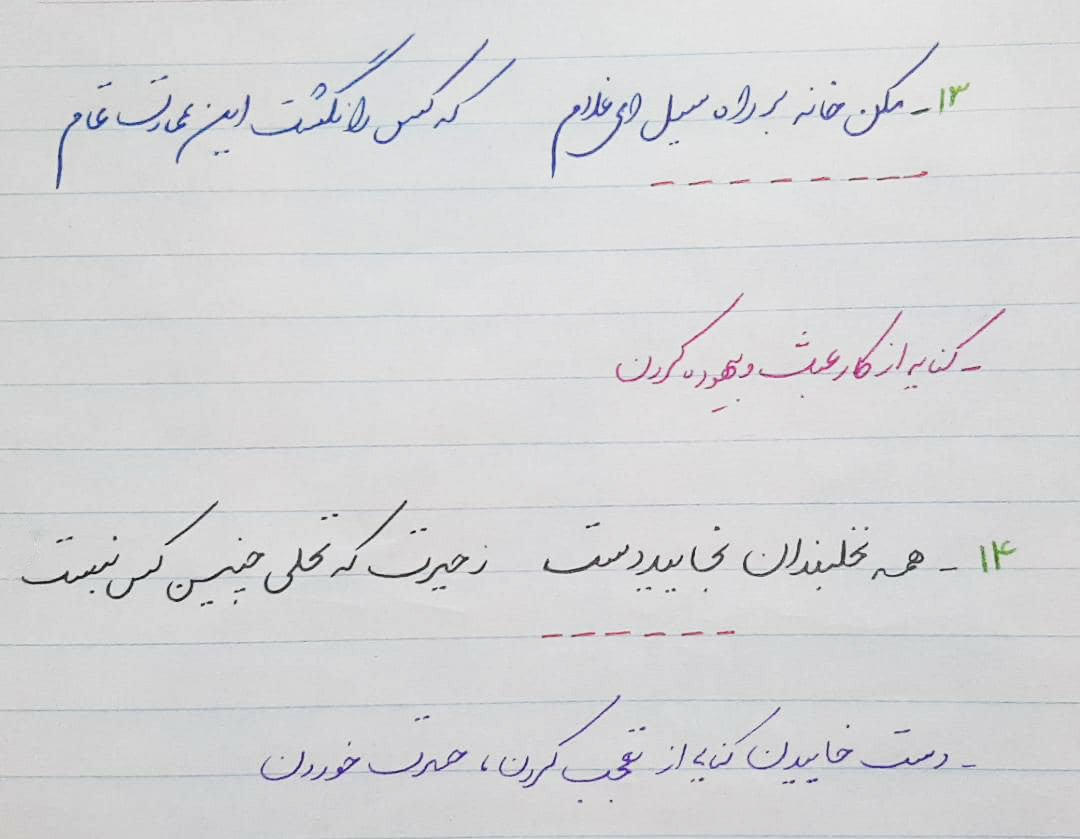 ۱۳- مکن خانه بر راه سیل ای غلام که کس را نگشت این عمارت تمام
- کنایه از کار عبث و بیهوده کردن
۱۴- همه نخلبندان بخاییدند دست ز حیرت که نخلی چنین کس نبست
- دست خاییدن کنایه از تعجب کردن، حسرت خوردن